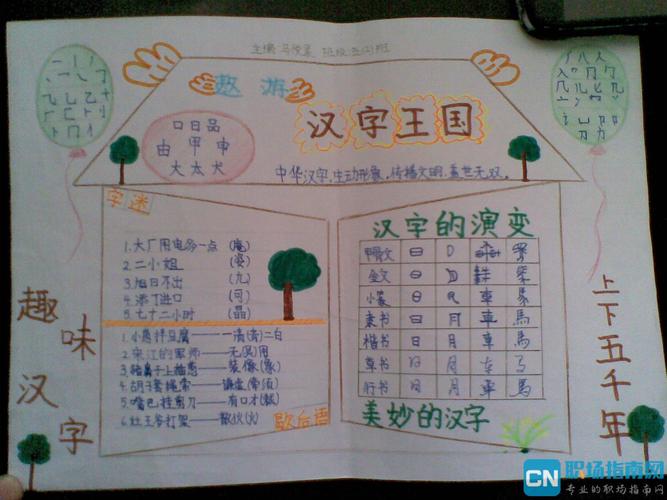 主编 马俊 班级:五(2)班
遨游
汉字王国
口日品
由甲申
大太犬
中华汉字,生动形象,传播文明,盖世无双。
字迷
1.大厂用电多一点 (庵)
2.二小姐 (姿)
3.旭日不出 (九)
4.添丁进口 (可)
5.七十二小时 (晶)
1.小葱拌豆腐——一清(青)二白
2.宋江的军师——无(吴)用
3.猪鼻子上插葱——装像(象)
4.胡子套绳索——谦虚(牵须)
5.嘴巴挂剪刀——有口才(裁)
6.灶王爷打架——散伙(火)
歇后语
汉字的演变
甲骨文 日
金文 日
小篆 日 車 馬
隶书 日 月 車 馬
楷书 日 月 車 馬
草书 日 月 车 马
行书 日 月 車 馬
美妙的汉字
趣味汉字
上下五千年
CN 职场指南网
专业的职场指南网